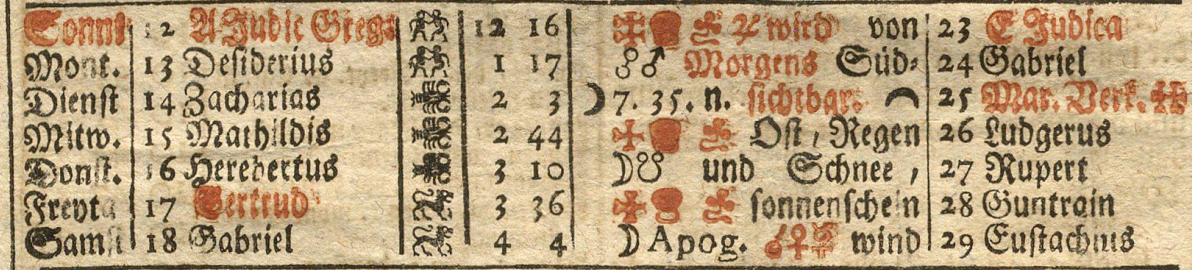 Sonnt. 12 A Judic Greg. 12 16 ♃ wird von 23 E Judica
Mont. 13 Desiderius 1 17 ☍♂ Morgens Süd⸗ 24 Gabriel
Dienst 14 Zacharias 2 3 ☽ 7. 35. n. sichtbar. 25 Mar. Verk.
Mitw. 15 Mathildis 2 44 Ost, Regen 26 Ludgerus
Donst. 16 Herebertus 3 10 ☽ und Schnee, 27 Rupert
Freyta 17 Gertrud 3 36 sonnenschein 28 Guntrain
Samst 18 Gabriel 4 4 ☽ Apog. wind 29 Eustachius